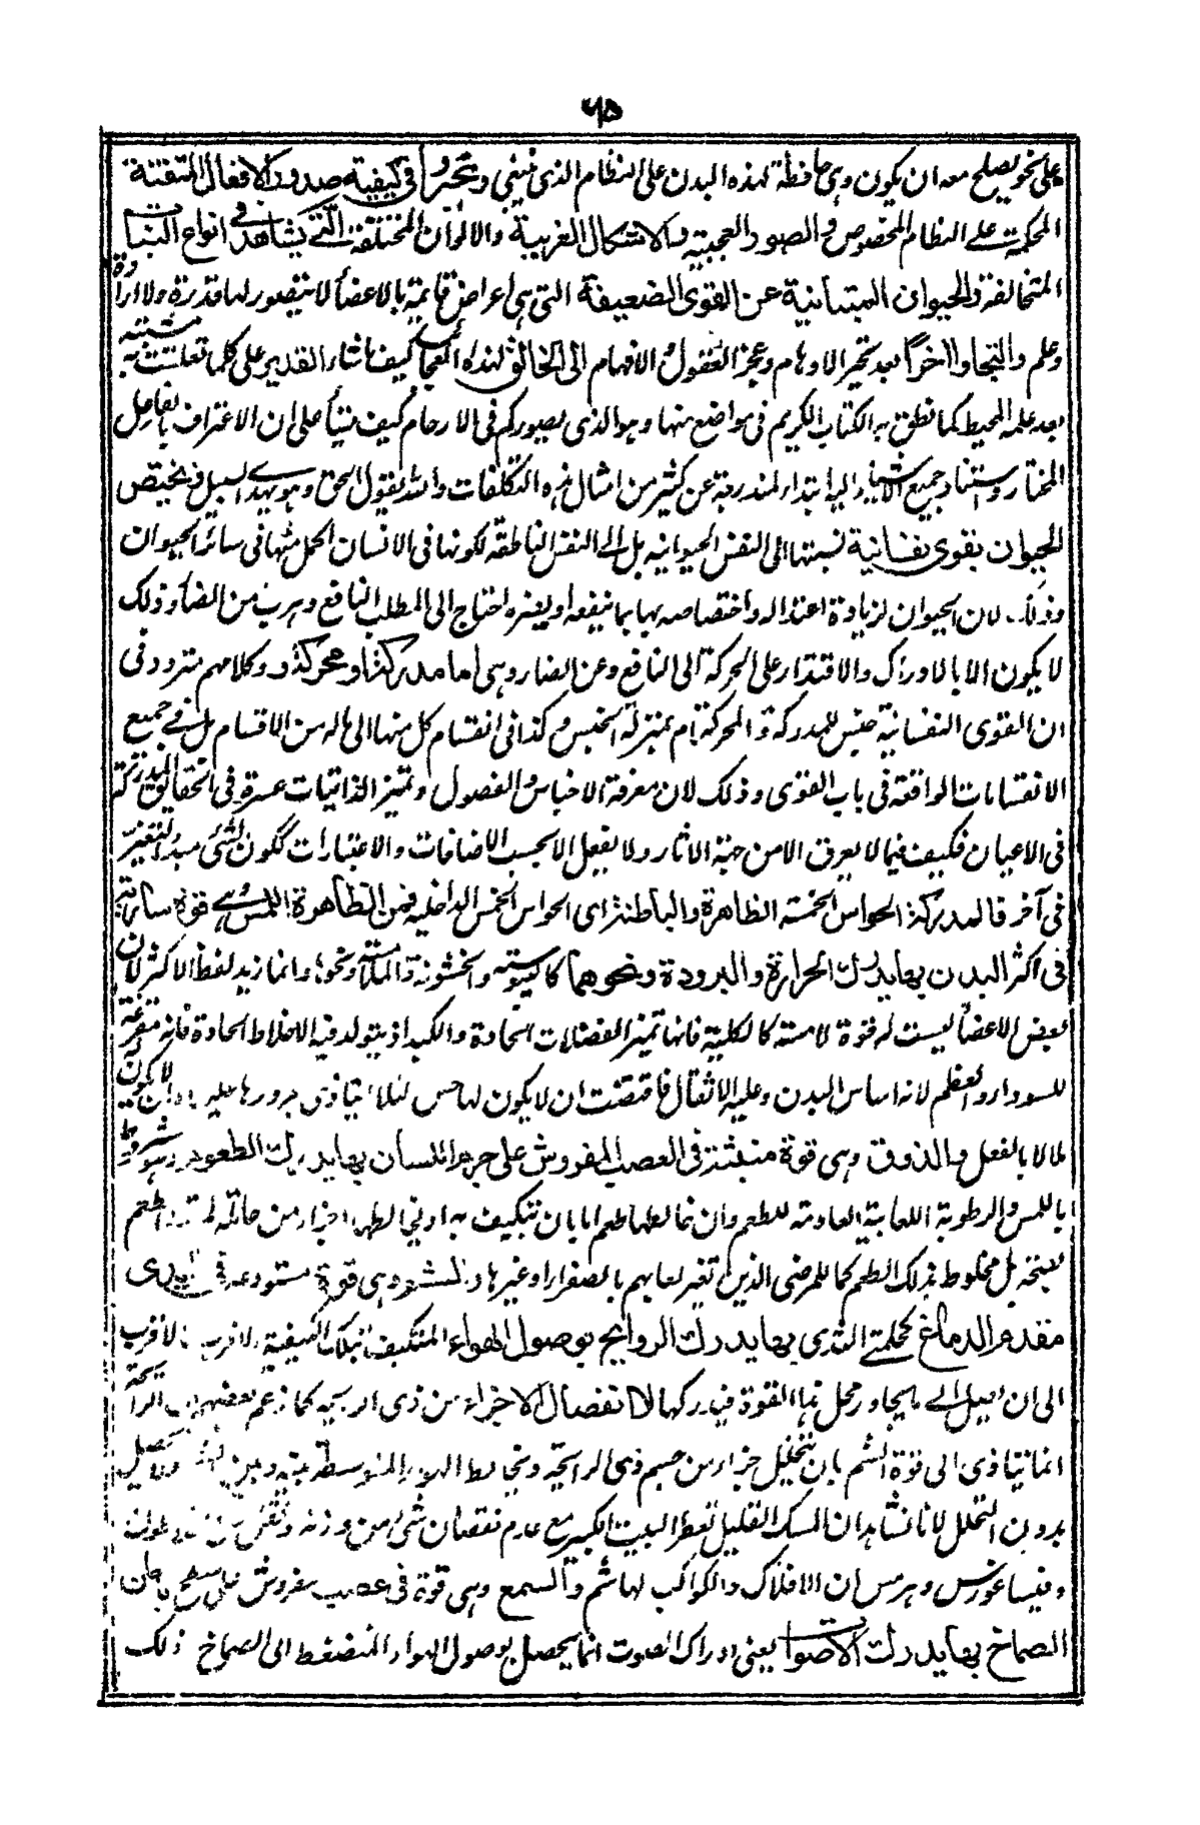 ٦٥
على نحو يصلح معه ان يكون وهى حافظة لهذه البدن على النظام الذى ينبغى وتحيروا فى كيفية صدور الافعال المتقنة
المحكمة على النظام المخصوص والصور العجيبة والاشكال الغريبة والالوان المختلفة التى يشاهد فى انواع النبات
المتخالفة والحيوان المتباينة عن القوى الضعيفة التى هى اعراض قايمة بالاعضأ لا يتصور لها قدرة ولا ارادة
وعلم والتجاوا اخراً بعد تحير الاوهام وعجز العقول والافهام الى الخالق لهذه العجائب كيف ما شاء القدير على كلما تعلقت به مشيته
بعد علمه المحيط كما نطق به الكتاب الكريم فى مواضع منها وهو الذى يصوركم فى الارحام كيف يشأ على ان الاعتراف بالفاعل
المختار واستناد جميع الاشياء اليه ابتداء لمندوحة عن كثير من امثال هذه التكلفات والله يقول الحق وهو يهدى السبيل ويختص
الحيوان بقوى نفسانية نسبتها الى النفس الحيوانيه بل الى النفس الناطقه لكونها فى الانسان اكمل منها فى سائر الحيوان
وذلك لان الحيوان لزيادة اعتداله واختصاصه بها بما ينفعه او يضره احتاج الى الطلب النافع وهرب من الضأر وذلك
لا يكون الا بالادراك والاقتدار على الحركة الى النافع وعن الضار وهى اما مدركة او محركة وكلامهم متردد فى
ان القوى النفسانية جنس للمدركة و المحركة ام بمنزلة الجنس وكذا فى انقسام كل منها الى ماله من الاقسام بل فى جميع
الانقسامات الواقعة فى باب القوى وذلك لان معرفة الاجناس والفصول وتميز الذاتيات عسرة فى الحقائق المدركة
فى الاعيان فكيف فيما لا يعرف الا من جهة الاثار ولا يفعل الا بحسب الاضافات والاعتبارات ككون الشئ مبدأ لتغير
فى آخر فالمدركة الحواس الخمسة الظاهرة والباطنة اى الحواس الخمس الداخليه فمن الظاهرة اللمس وهى قوة سارية
فى اكثر البدن بها يدرك الحرارة والبرودة ونحوهما كاليبوسة والخشونة والملاسة ونحوها وانما زيد لفظ الاكثر لان
بعض الاعضأ ليست له قوة لامسة كالكلية فانها تميز الفضلات الحادة والكبد اذ يتولد فيه الاخلاط الحادة فانه مفرغة
للسوداء والعظم لانه اساس البدن وعليه الاثقال فاقتضت ان لا يكون لها حس لئلا يتاذى بمرورها عليه وان لا يكون
لها لا بالفعل والذوق وهى قوة منبثة فى العصب المفروش على جرم اللسان بها يدرك الطعوم وهو مشروط
باللمس والرطوبة اللعابية العادمة للطعم وان خالطها طعم اما بان تتكيف به او بخالطها اجزاء من حامله لم الطعم
بعينه بل مخلوط بذلك الطعم كما للمرضى الذين تغير لعابهم بالصفرا او غيرها والشم وهى قوة مستودعة فى زايدتى
مقدم الدماغ كحلمتى الثدى بها يدرك الروايح بوصول الهواء المتكيف بتلك الكيفية الاقرب فالاقرب
الى ان يصل الى ما يجاور محل هذا القوة فيدركها لا بانفصال الاجزاء من ذى الرايحه كما زعم بعضهم ان الرائحة
انما يتاذى الى قوة الشم بان يتحلل جزء من جسم ذى الرائحة ويخالط الهواء المتوسطة بينه وبين
بدون التحلل لانا نشاهد ان المسك القليل تعطر البيت الكبير مع عدم نقصان شئ من وزنه ونقل عن
وفيثاغورس وهرمس ان الافلاك والكواكب لها شم والسمع وهى قوة فى عصب مفروش على سطح باطن
الصماخ بها يدرك الاصوات يعنى ادراك الصوت انما يحصل بوصول الهواء المنضغط الى الصماخ ذلك